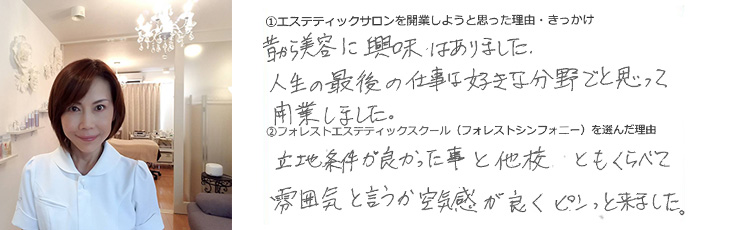 ①エステティックサロンを開業しようと思った理由・きっかけ
昔から美容に興味はありました.
人生の最後の仕事は好きな分野でと思って
開業しました。
②フォレストエステティックスクール（フォレストシンフォニー）を選んだ理由
立地条件が良かった事と他校 ともくらべて
雰囲気と言うか空気感が良くピンっと来ました。